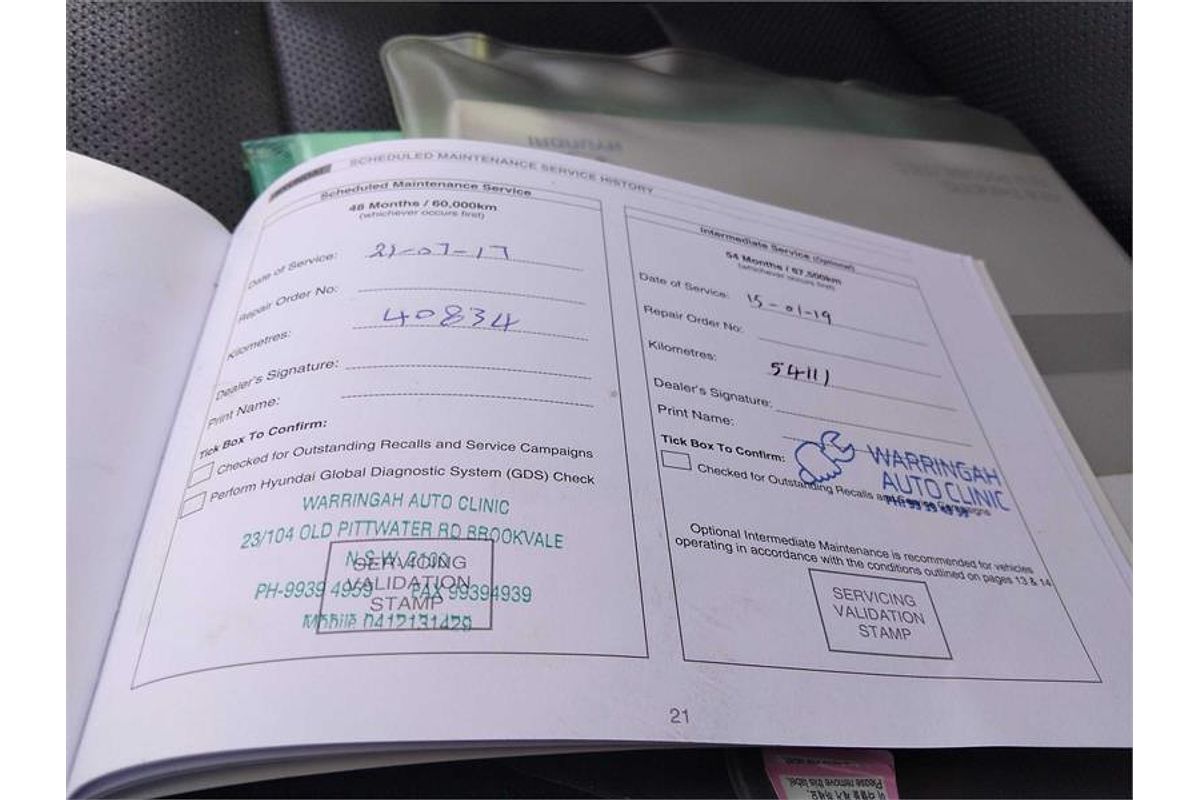 HYUNDAI
SCHEDULED MAINTENANCE SERVICE HISTORY
Scheduled Maintenance Service
48 Months / 60,000km
(whichever occurs first)
Date of Service: 21-07-17
Repair Order No:
Kilometres: 40834
Dealer's Signature:
Print Name:
Tick Box To Confirm:
Checked for Outstanding Recalls and Service Campaigns
Perform Hyundai Global Diagnostic System (GDS) Check
WARRINGAH AUTO CLINIC
23/104 OLD PITTWATER RD BROOKVALE
N.S.W. 2100
PH-9939 4959 FAX 99394939
Mobile 0412131429
SERVICING
VALIDATION
STAMP
Intermediate Service (Optional)
54 Months / 67,500km
(whichever occurs first)
Date of Service: 15-01-19
Repair Order No:
Kilometres: 54111
Dealer's Signature:
Print Name:
Tick Box To Confirm:
Checked for Outstanding Recalls and Service Campaigns
WARRINGAH
AUTO CLINIC
Optional Intermediate Maintenance is recommended for vehicles
operating in accordance with the conditions outlined on pages 13 & 14
SERVICING
VALIDATION
STAMP
21
Please remove this label.